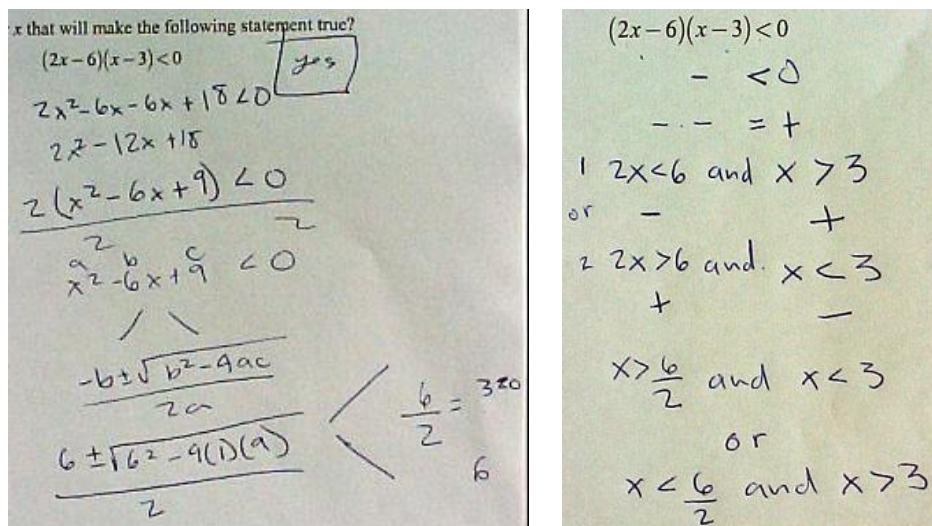 x that will make the following statement true?
(2x – 6)(x – 3) < 0
yes
2x² - 6x - 6x + 18 < 0
2x² - 12x + 18
2(x² - 6x + 9) < 0
2 2
a b c
x² - 6x + 9 < 0
-b ± √b² - 4ac
2a
6 ± √6² - 4(1)(9)
2
6/2 = 3 ≠ 0
6
(2x – 6)(x – 3) < 0
- < 0
- · - = +
1 2x < 6 and x > 3
or - +
2 2x > 6 and. x < 3
+ -
x > 6/2 and x < 3
or
x < 6/2 and x > 3